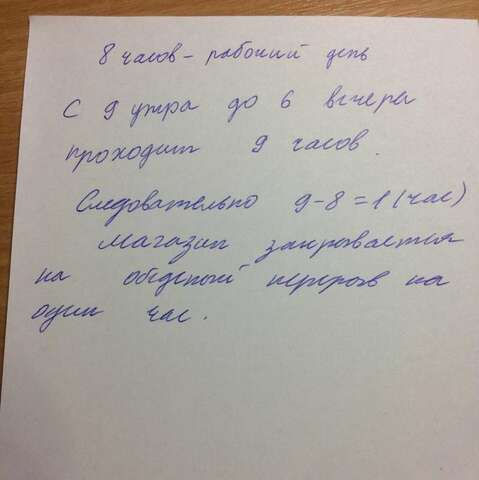 8 часов – рабочий день
С 9 утра до 6 вечера
проходит 9 часов.
Следовательно 9-8=1(час)
магазин закрывается
на обеденый перерыв на
один час.